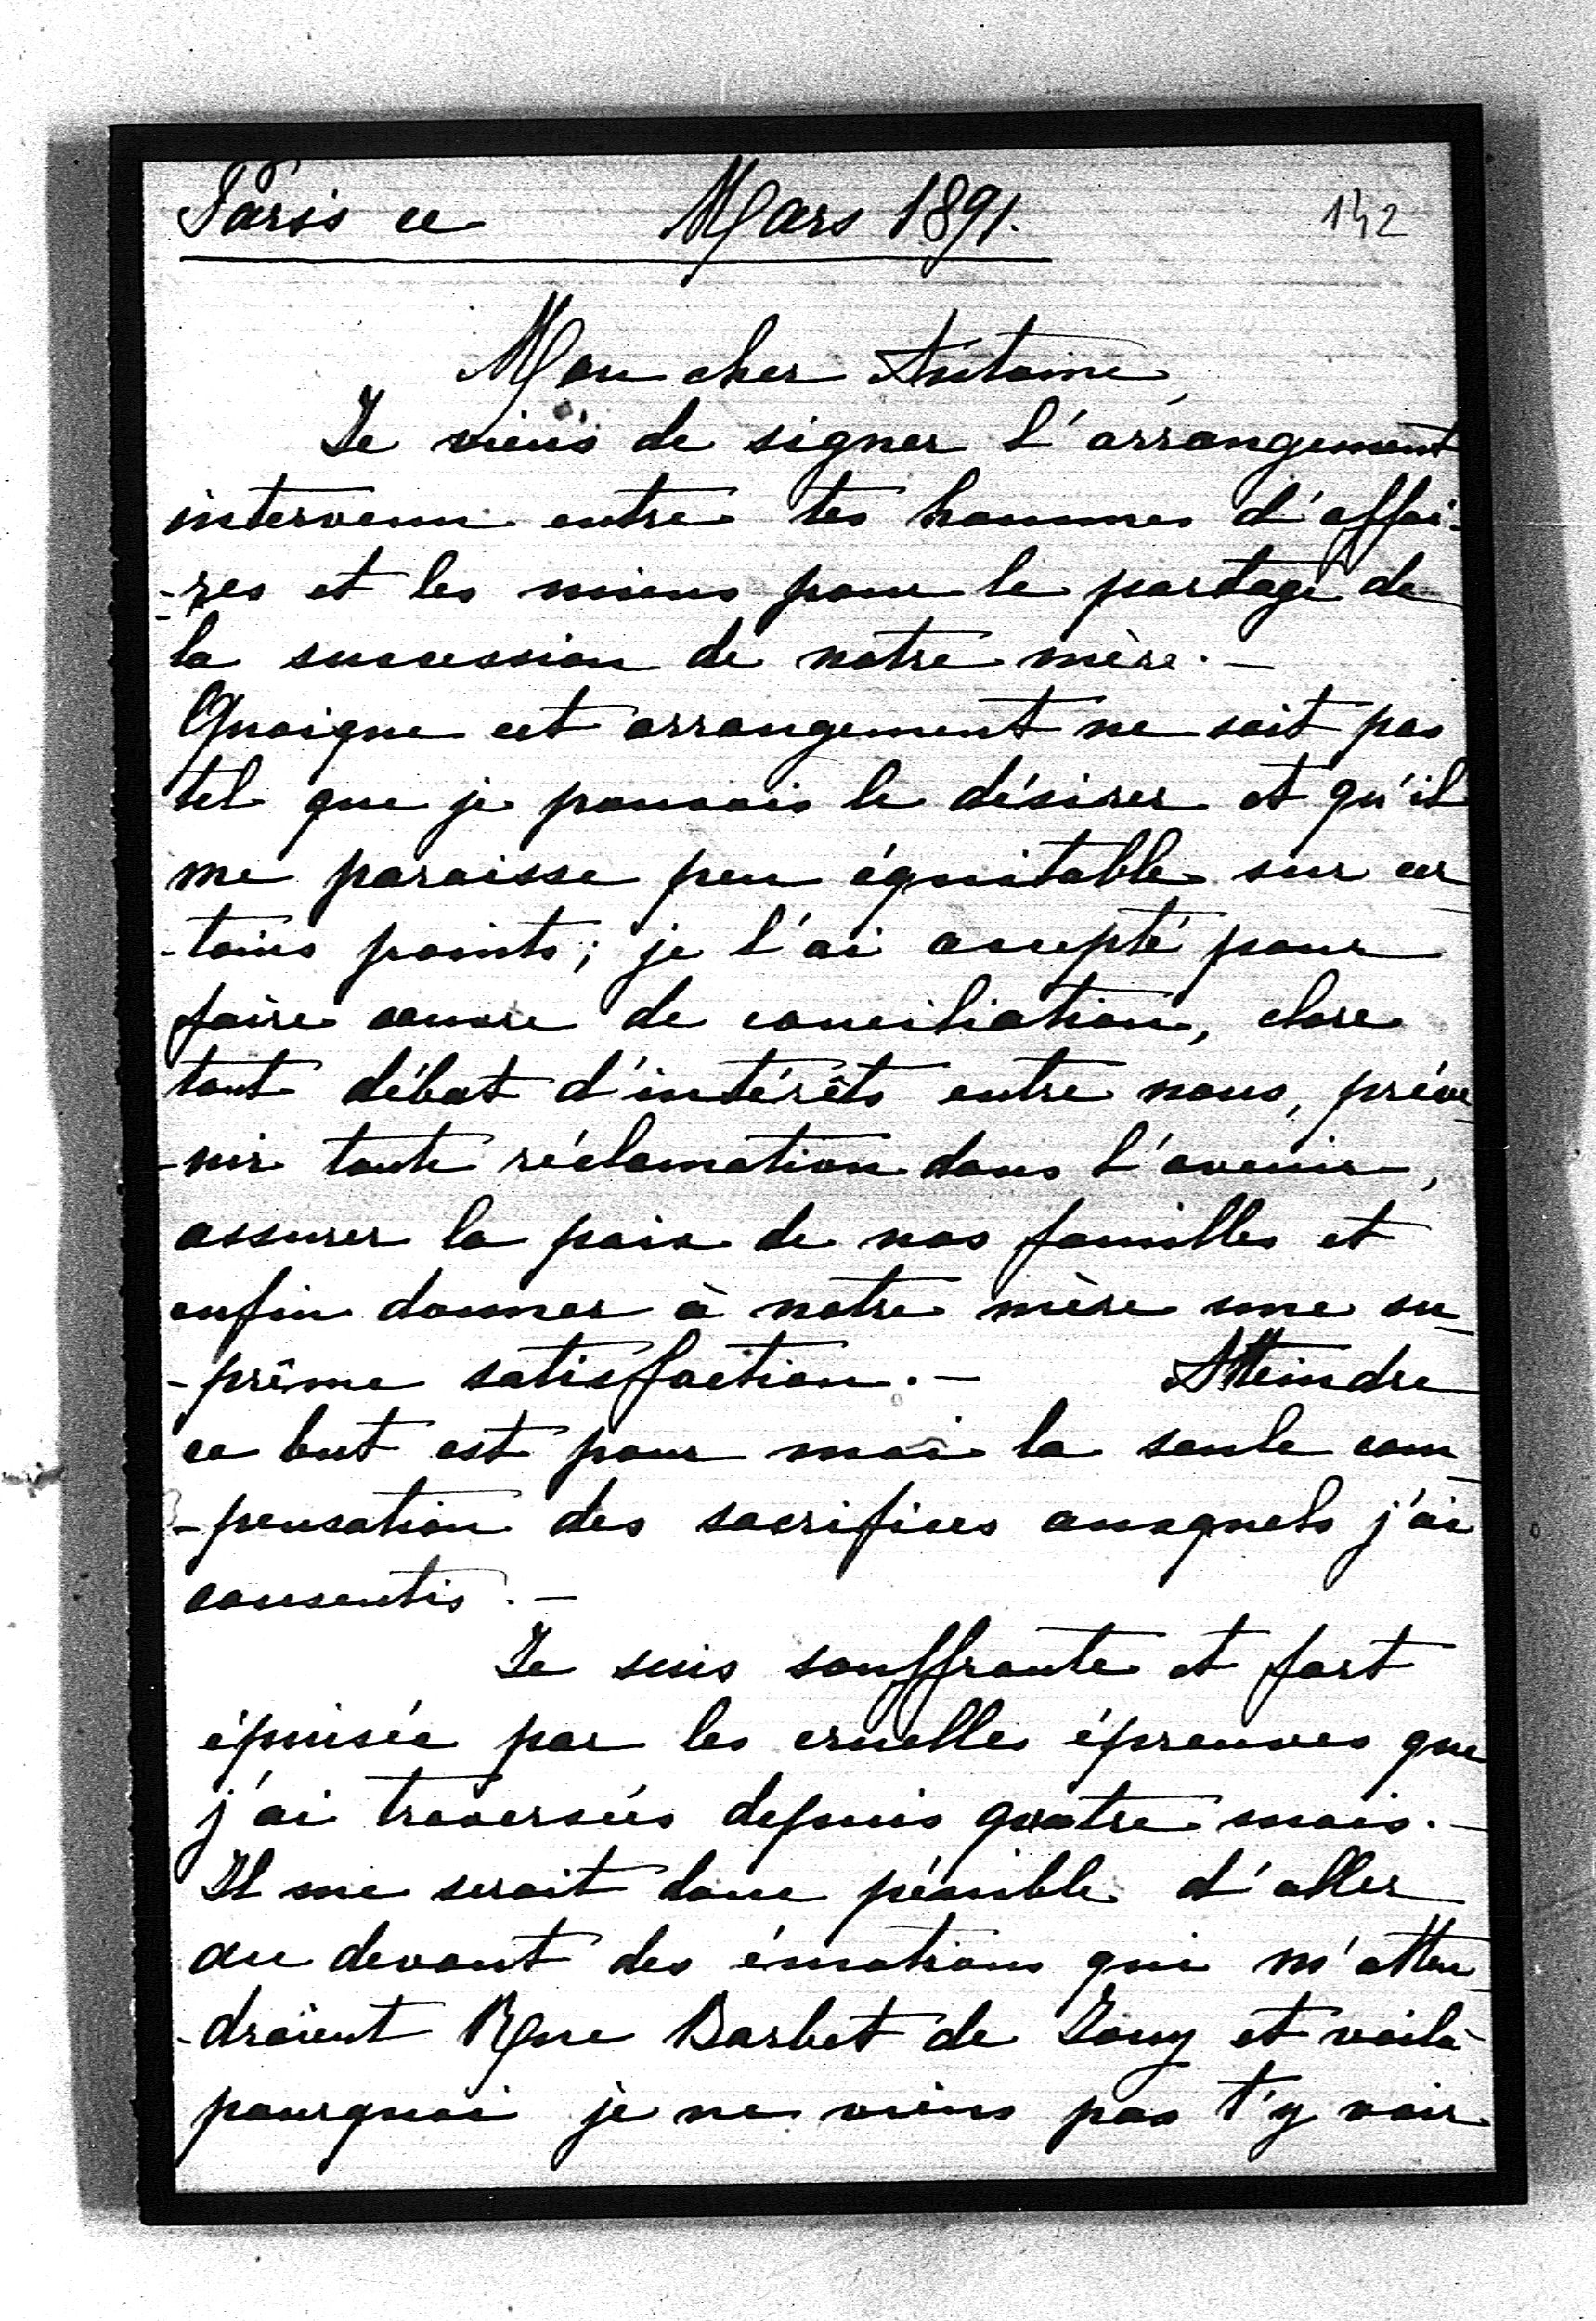 Paris ce Mars 1891. 142
Mon cher Antoine,
Je viens de signer l'arrangement
intervenu entre tes hommes d'affai-
-res et les miens pour le partage de
la succession de notre mère. —
Quoique cet arrangement ne soit pas
tel que je pouvais le désirer et qu'il
me paraisse peu équitable sur cer
-tains points; je l'ai accepté pour
faire œuvre de conciliation, clore
tout débat d'intérêts entre nous, préve
-nir toute réclamation dans l'avenir,
assurer la paix de nos familles et
enfin donner à notre mère une su_
-prême satisfaction. — Atteindre
ce but est pour moi la seule com_
-pensation des sacrifices auxquels j'ai
consentis. —
Je suis souffrante et fort
épuisée par les cruelles épreuves que
j'ai traversées depuis quatre mois. —
Il me serait donc pénible d'aller
au devant des émotions qui m'atten_
-draient Rue Barbet de Jouy et voilà
pourquoi je ne viens pas t'y voir